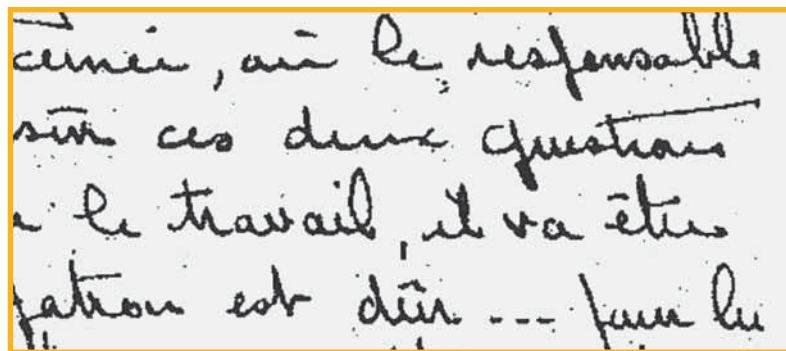 , où le responsable
sûr ces deux questions
le travail, il va être
est dûr --- pour lui